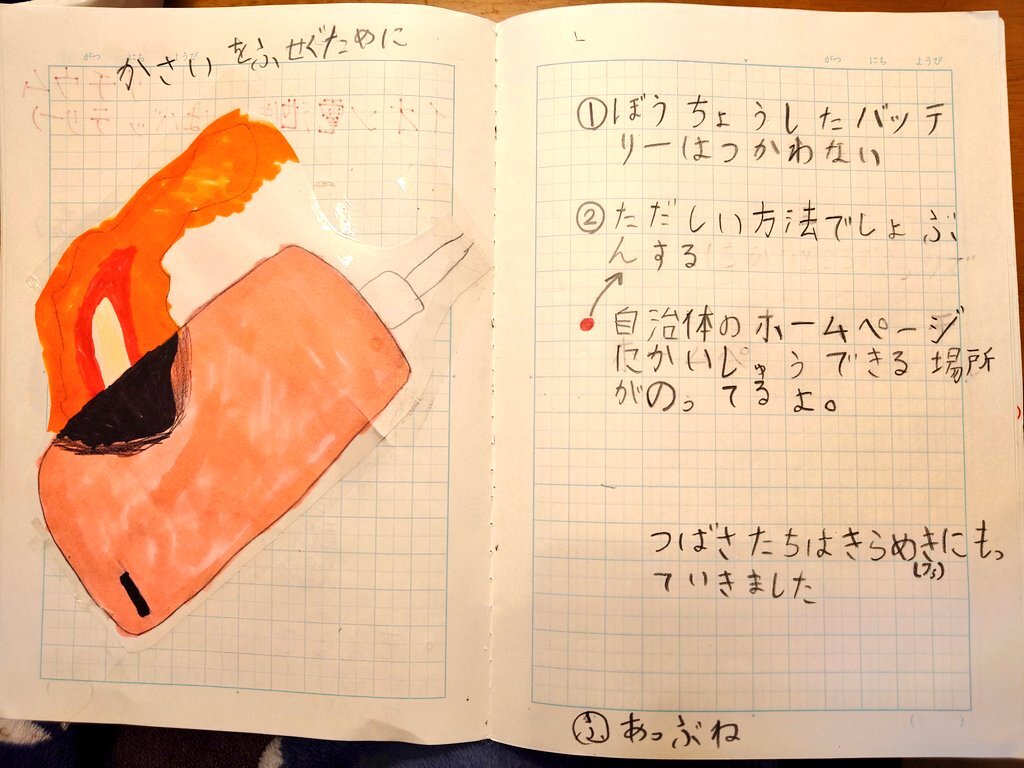 がつ にち ようび
かさいをふせぐために
がつ にち ようび
①ぼうちょうしたバッテ
リーはつかわない
②ただしい方法でしょぶ
んする
自治体のホームページ
にかいしゅうできる場所
がのってるよ。
つばさたちはきらめきにもっ
ていきました
㋫あっぶね